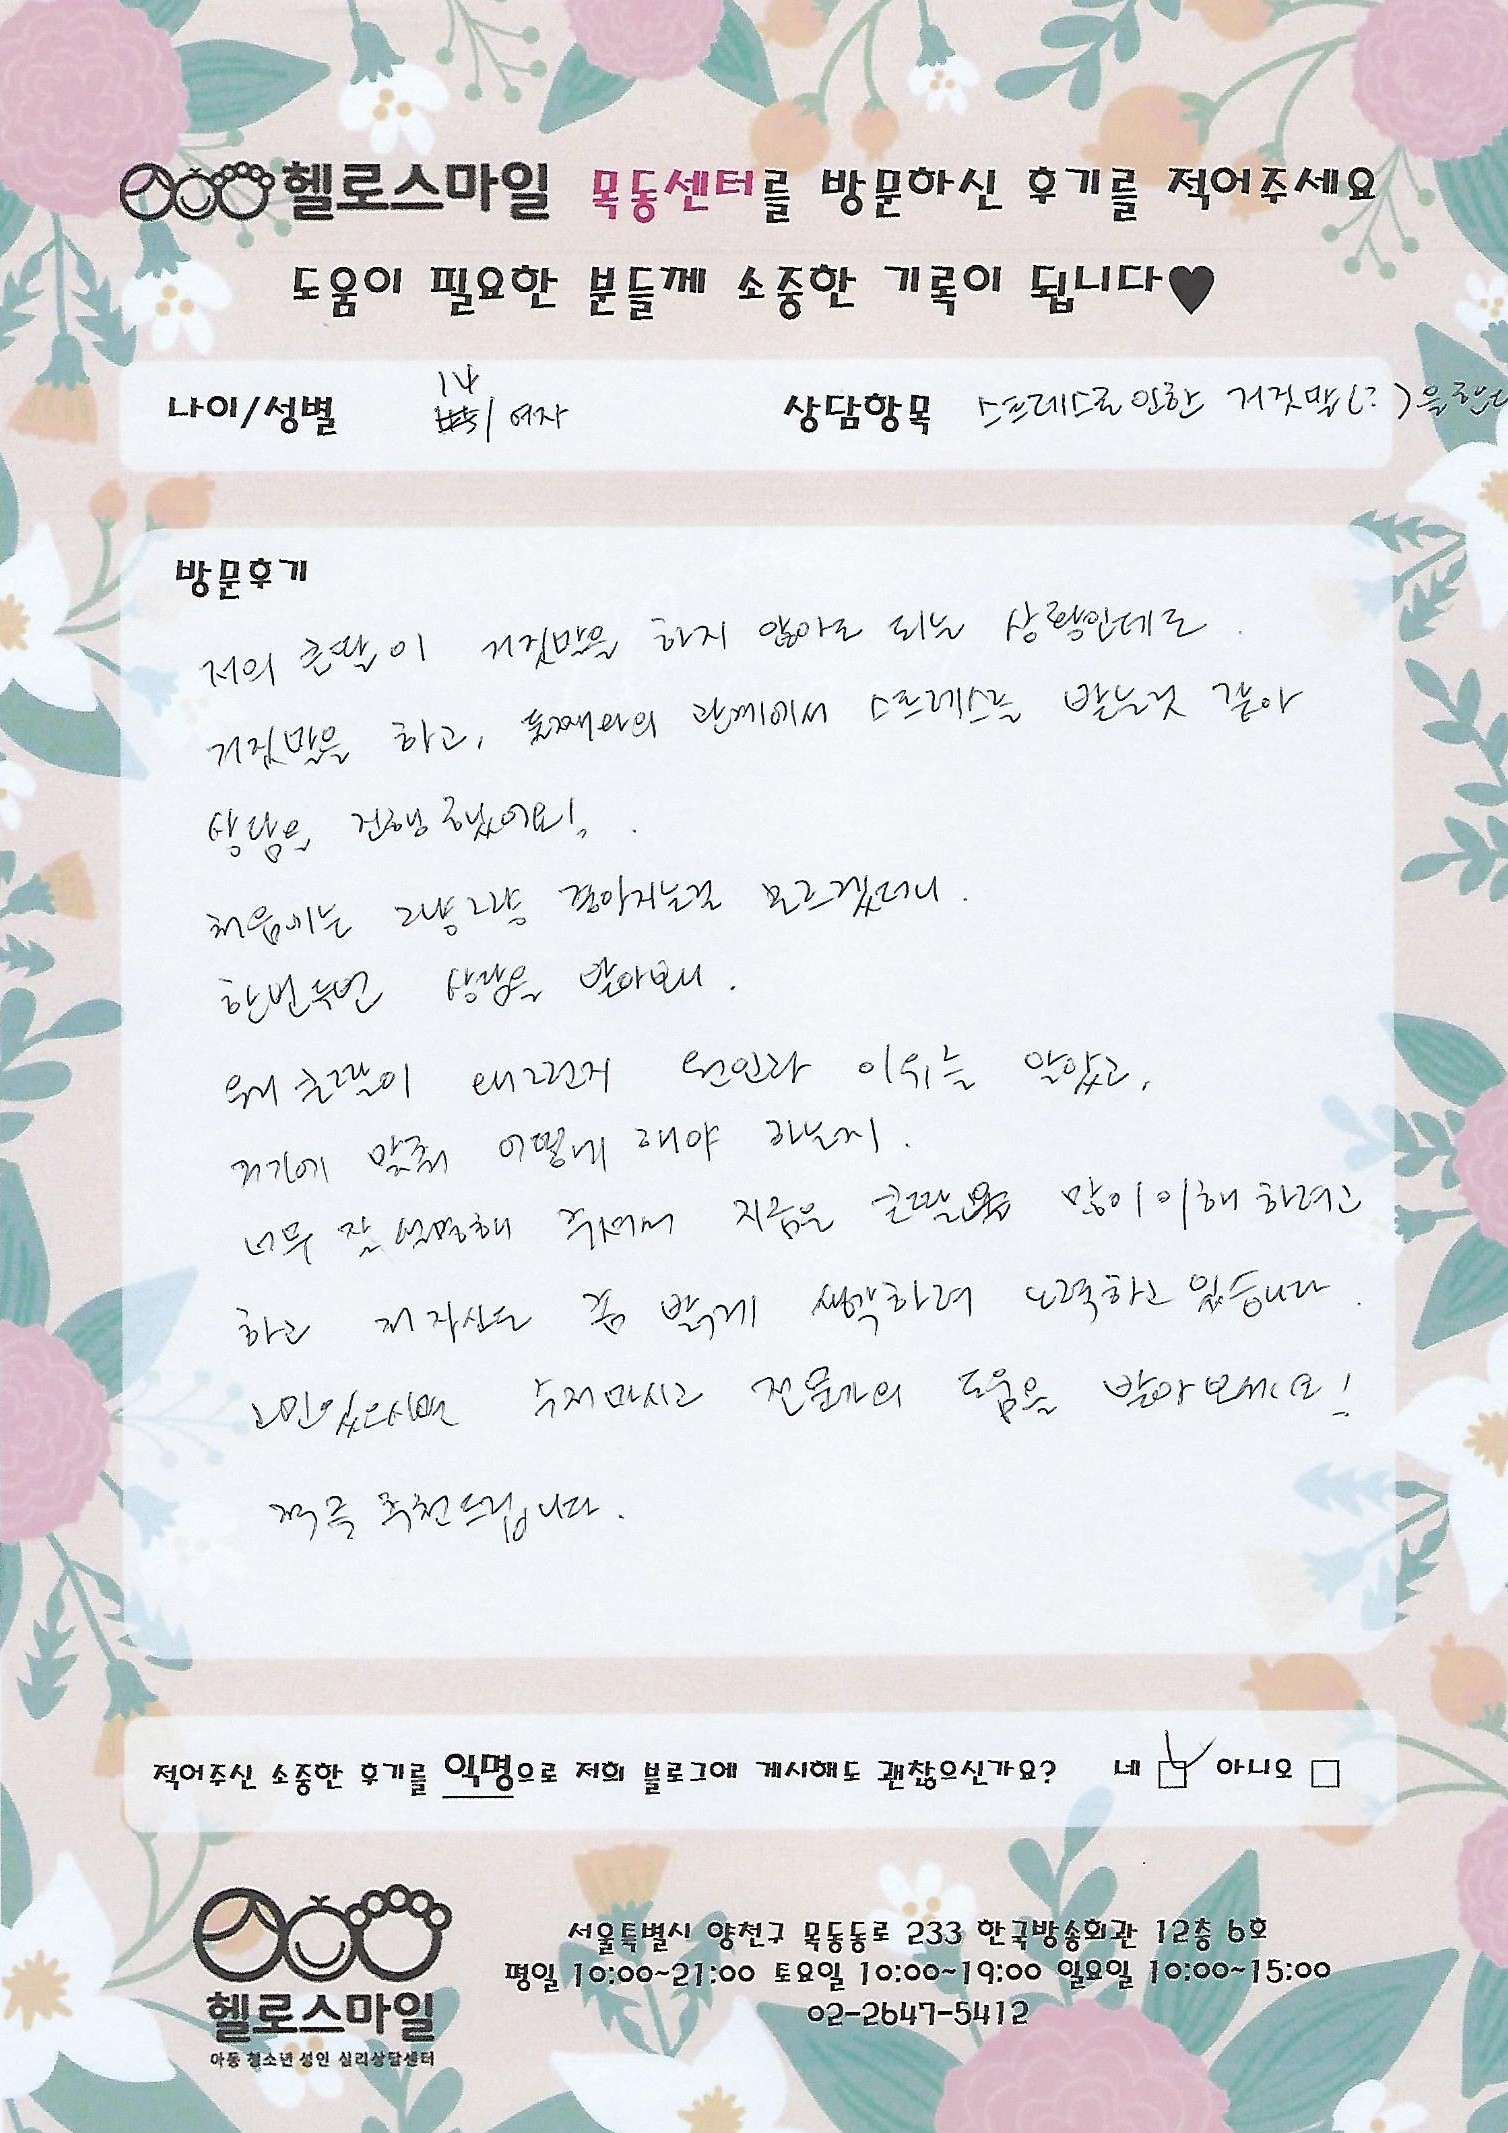 헬로스마일 목동센터를 방문하신 후기를 적어주세요
도움이 필요한 분들께 소중한 기록이 됩니다♥
나이/성별 14 / 여자 상담항목 스트레스로 인한 거짓말(?)을한다
방문후기
저의 큰딸이 거짓말을 하지 않아도 되는 상황인데도
거짓말을 하고, 둘째와의 관계에서 스트레스를 받는것 같아
상담을 진행했어요!
처음에는 그냥그냥 좋아지는걸 모르겠더니.
한번두번 상담을 받아보니.
왜 큰딸이 왜그런지 원인과 이유를 알았고,
거기에 맞춰 어떻게 해야 하는지.
너무 잘 설명해 주셔서 지금은 큰딸을 많이 이해 하려고
하고 저 자신도 좀 밝게 생각하려 노력하고 있습니다.
고민있으시면 주저마시고 전문가의 도움을 받아보세요!
적극 추천드립니다.
적어주신 소중한 후기를 익명으로 저희 블로그에 게시해도 괜찮으신가요? 네 아니오
서울특별시 양천구 목동동로 233 한국방송회관 12층 6호
평일 10:00~21:00 토요일 10:00~19:00 일요일 10:00~15:00
02-2647-5412
헬로스마일
아동 청소년 성인 심리상담센터